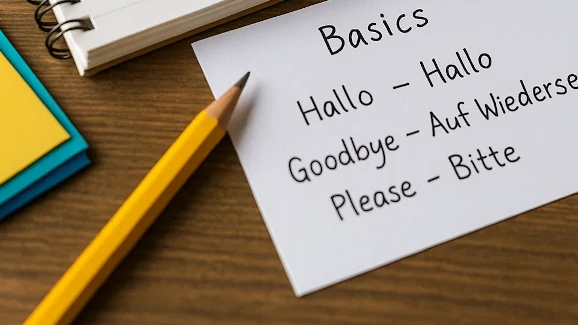 Basics
Hallo – Hallo
Goodbye – Auf Wiederse
Please – Bitte